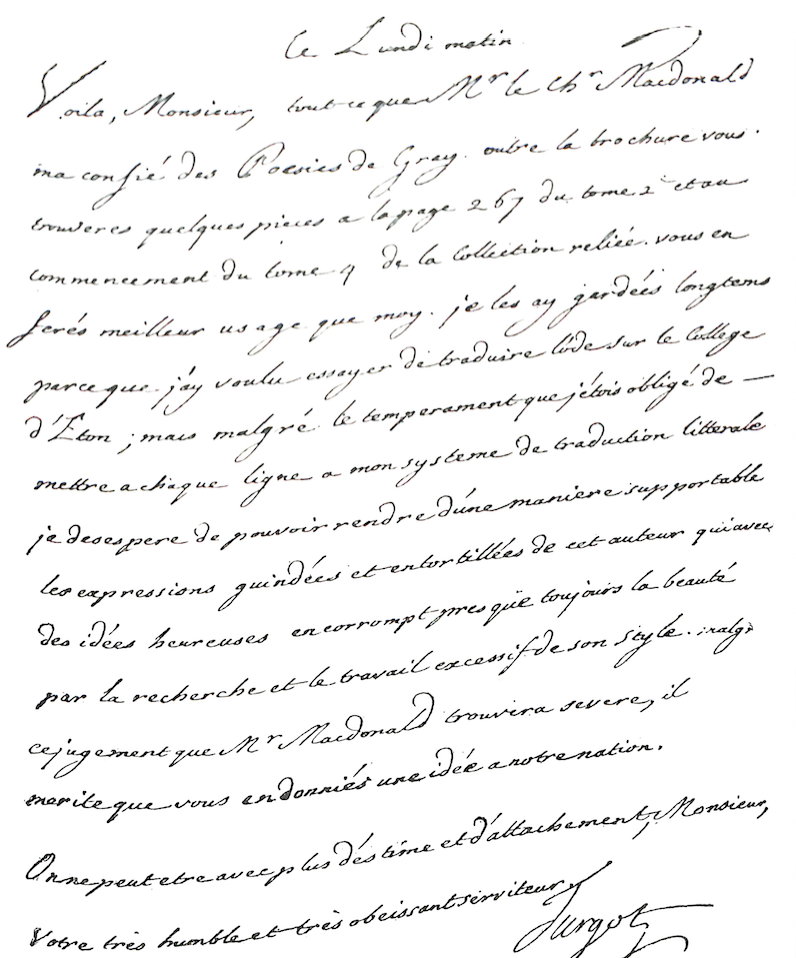 Ce Lundi matin
Voila, Monsieur, tout ce que Mr le Chr Macdonald
ma confié des Poesies de Gray. outre la brochure vous
trouveres quelques pieces a la page 267 du tome 2e et au
commencement du tome 4 de la Collection reliée. vous en
ferés meilleur usage que moy. je les ay gardées longtems
parceque j'ay voulu essayer de traduire l'ode sur le College
d'Eton ; mais malgré le temperament que j'étois obligé de —
mettre a chaque ligne a mon systeme de traduction litterale
je desespere de pouvoir rendre d'une maniere supportable
les expressions guindées et entortillées de cet auteur qui avec
des idées heureuses en corrompt presque toujours la beauté
par la recherche et le travail excessif de son style. malgré
ce jugement que Mr Macdonald trouvera severe, il
merite que vous en donniés une idée a notre nation.
On ne peut etre avec plus d'estime et d'attachement, Monsieur,
Votre très humble et très obeissant serviteur
Turgot